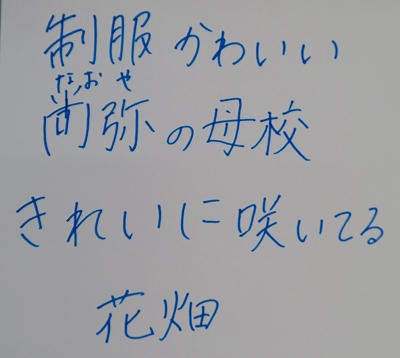 制服かわいい
なおや
尚弥の母校
きれいに咲いてる
花畑